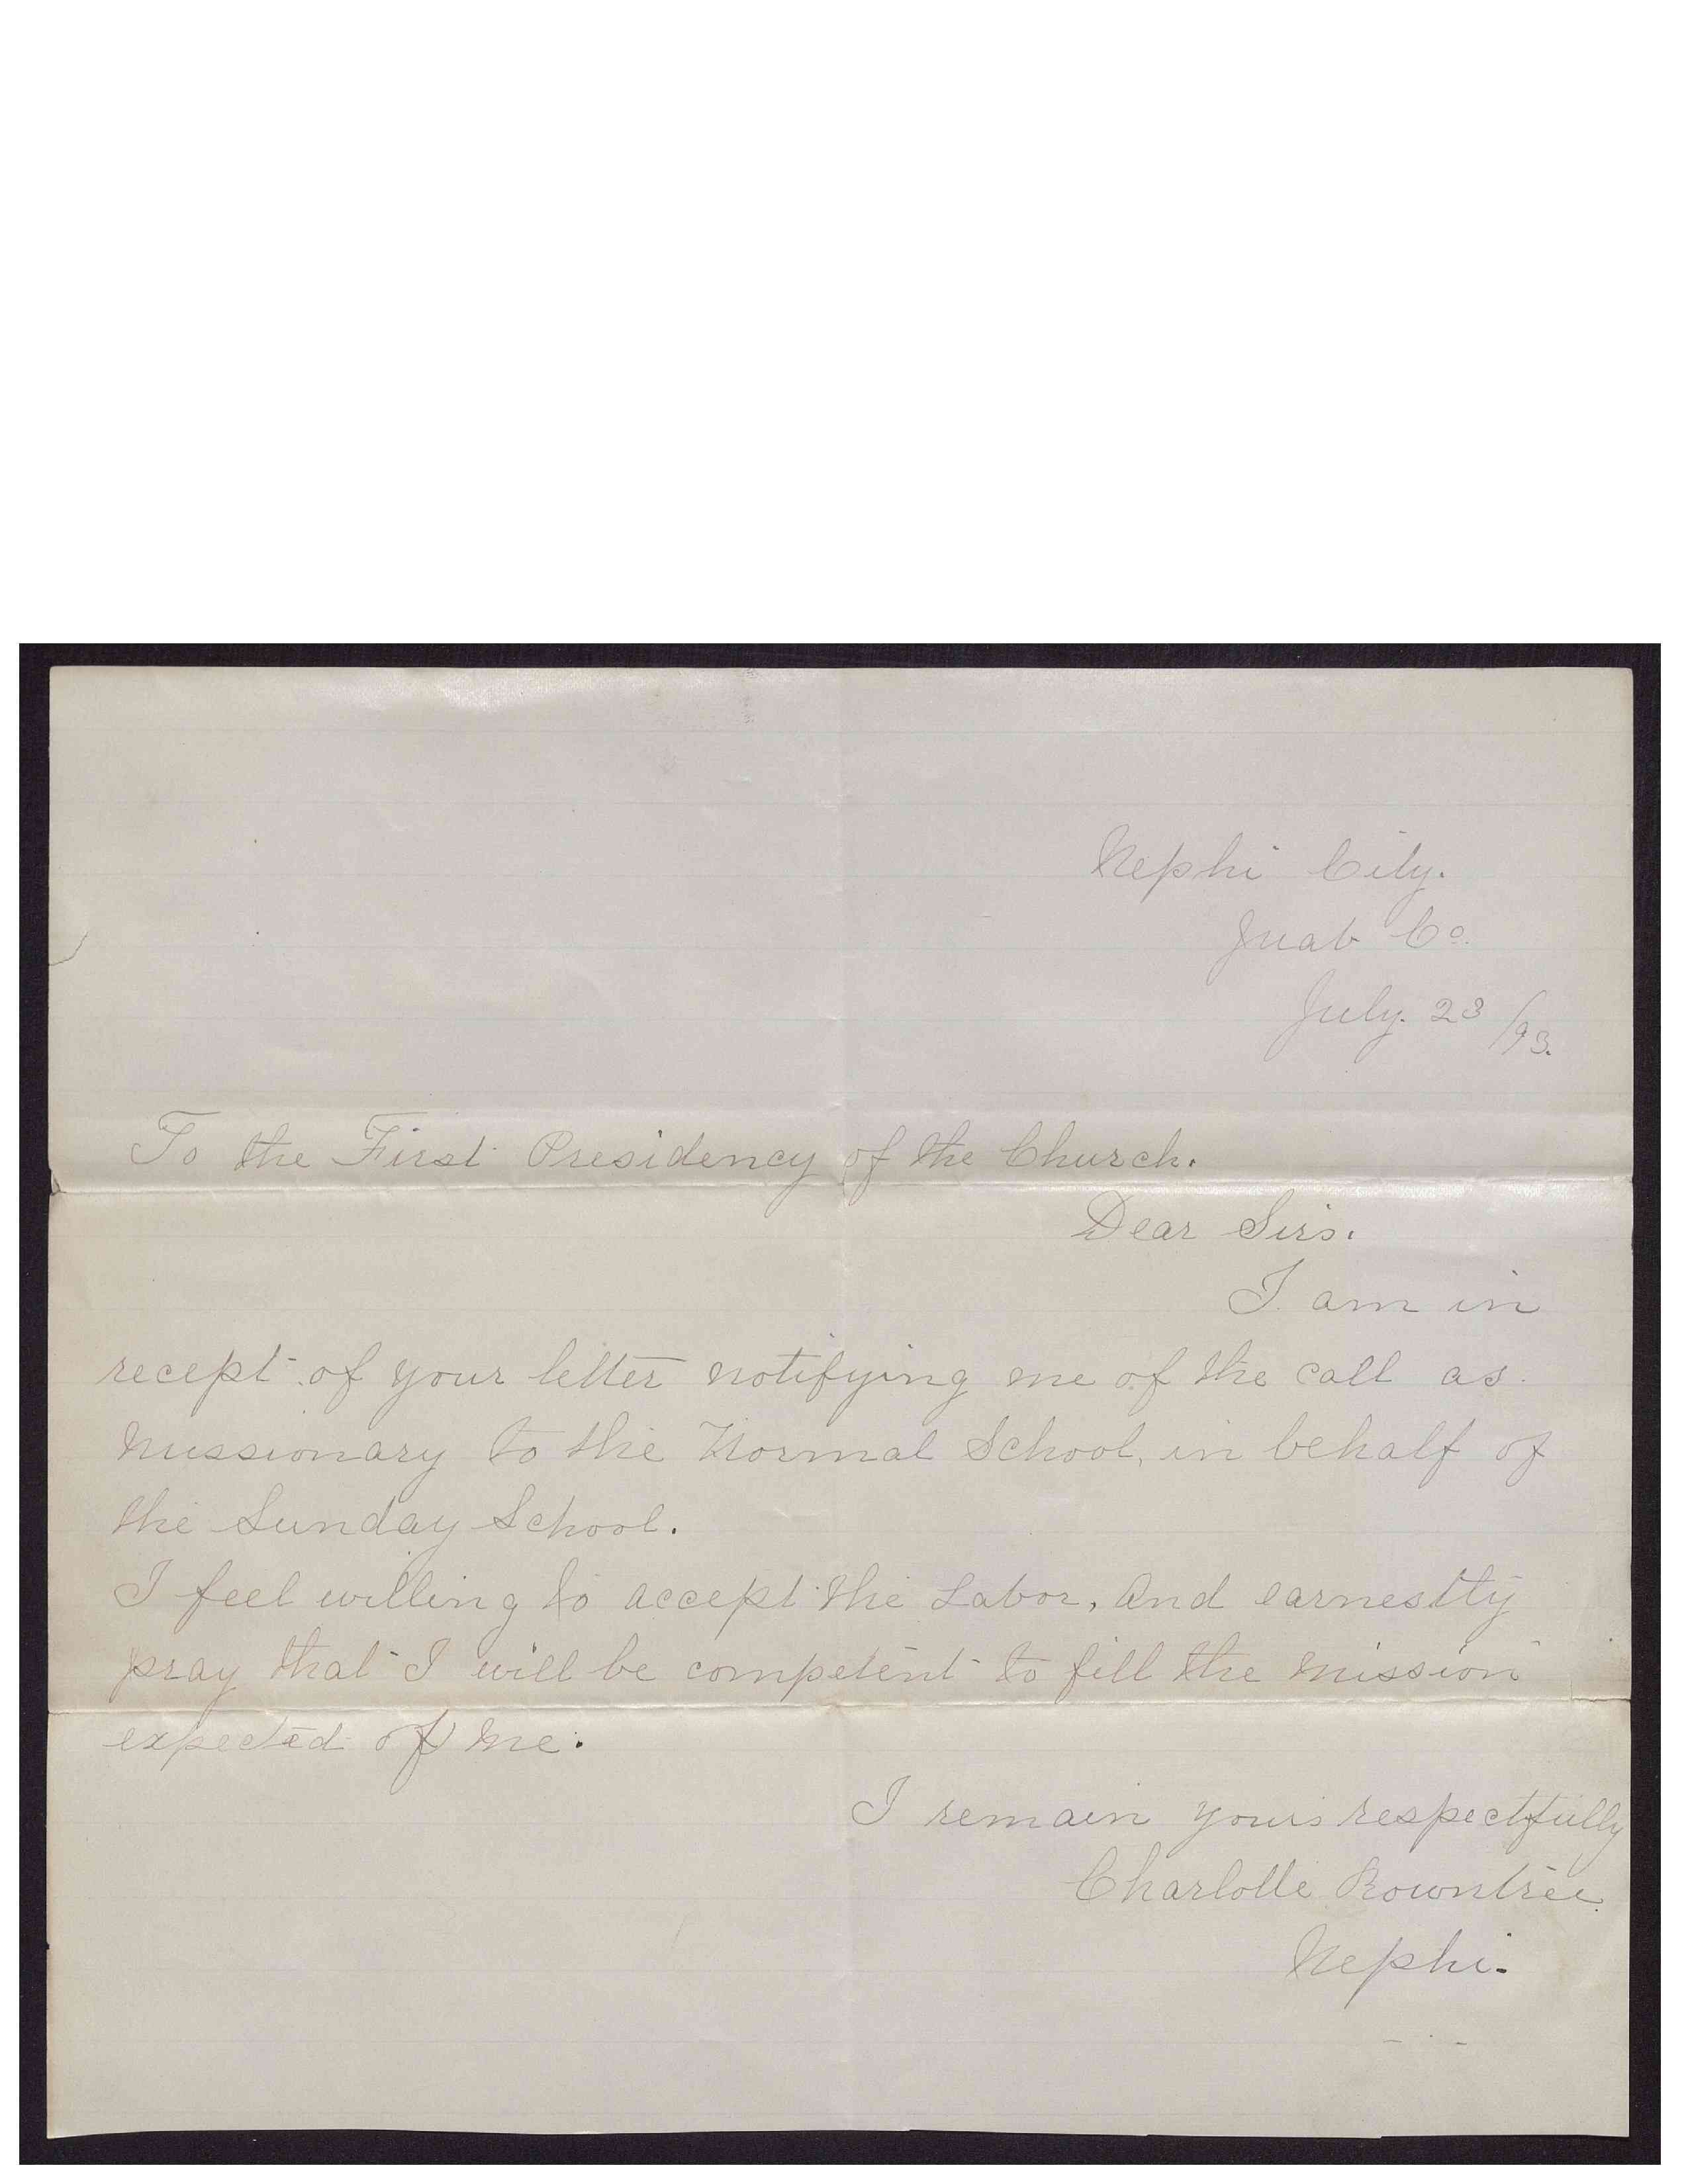 Nephi City.
Juab Co.
July. 23/93.
To the First Presidency of the Church.
Dear Sirs.
I am in
recept of your letter notifying me of the call as
Missionary to the Normal School, in behalf of
the Sunday School.
I feel willing to accept the Labor, and earnestly
pray that I will be competent to fill the mission
expected of me.
I remain yours respectfully
Charlotte Rowntree.
Nephi.